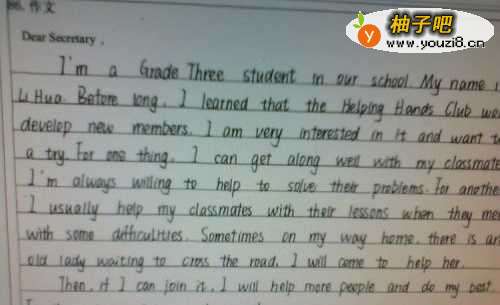 作文
柚子吧
www.youzi8.cn
Dear Secretary,
I'm a Grade Three student in our school. My name
Li Hua. Before long, I learned that the Helping Hands Club
develop new members. I am very interested in it and want
a try. For one thing, I can get along well with my classmate
I'm always willing to help to solve their problems. For another
I usually help my classmates with their lessons when they
with some difficulities. Sometimes on my way home, there is an
old lady waiting to cross the road, I will come to help her.
Then, if I can join it, I will help more people and do my best.